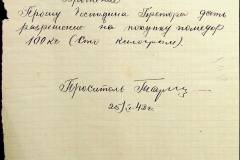 Прошу Господина Претора дать
разрешение на покупку помидор
100 кг (Сто килограмм)
Проситель
25/X 42г.